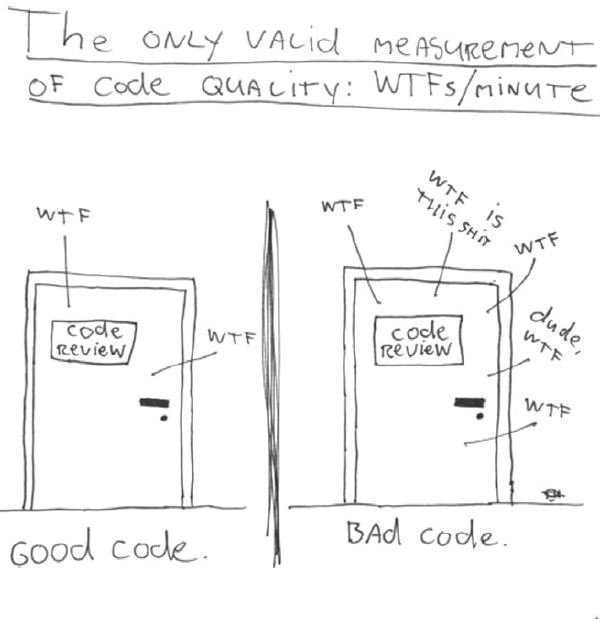 The ONLY VALID MEASUREMENT
OF Code QUALITY: WTFs/MINUTE
WTF
code
REVIEW
WTF
GOOD CODE.
WTF
WTF is
THIS SHIT
WTF
code
REVIEW
dude,
WTF
WTF
BAd code.